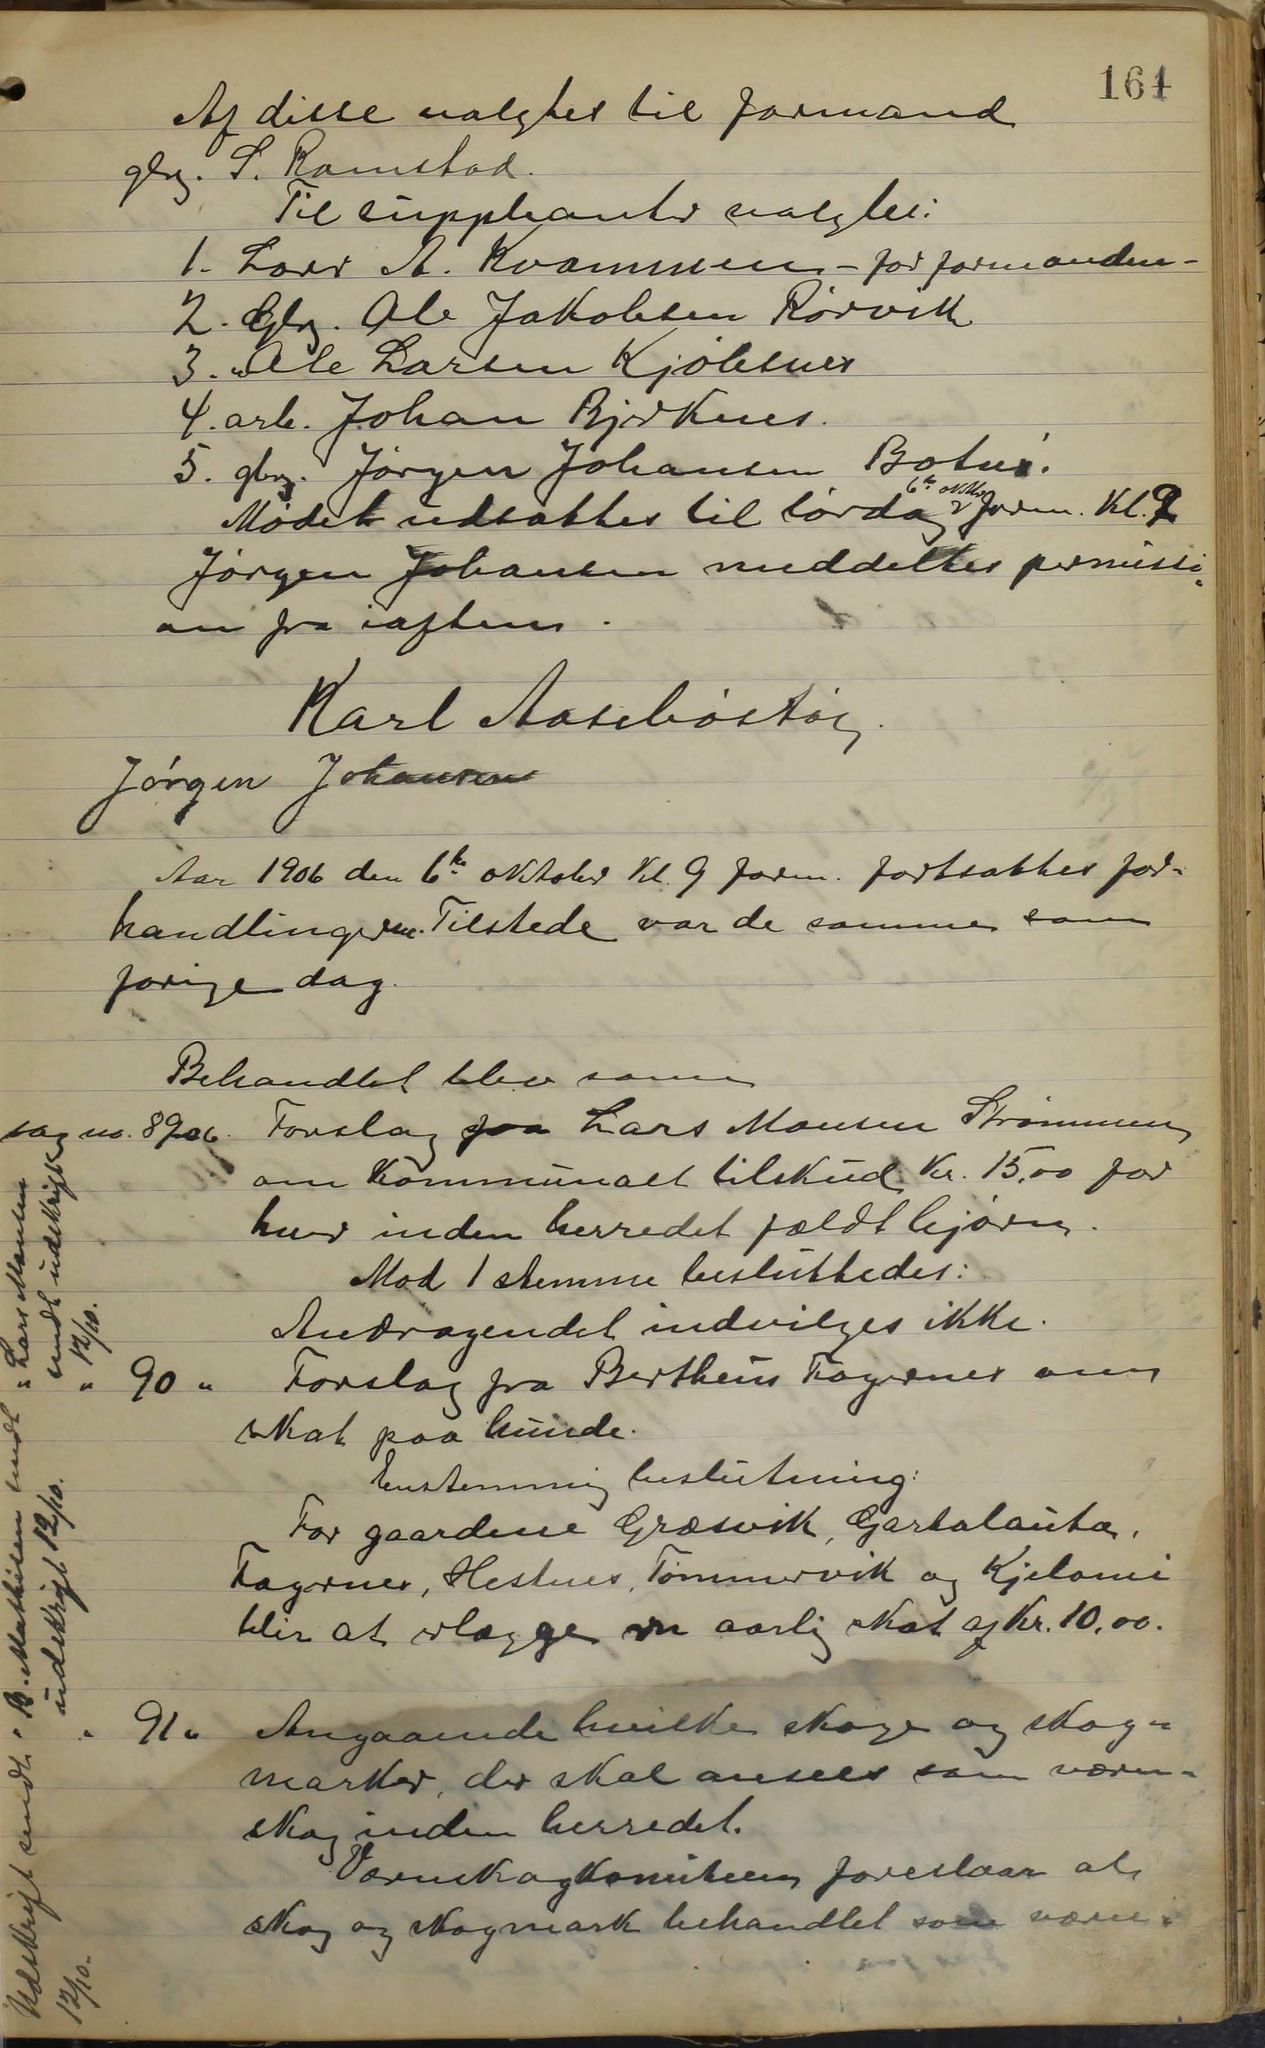 164
Af disse valgtes til formand
gbr. S. Ramstad.
Til suppleanter valgtes:
1. Lars A. Kvammen - for formanden -
2. Gbr. Ole Jakobsen Rørvik
3. " Ole Larsen Kjølesnes
4. arb. Johan Bjerknes.
5. gbr. Jørgen Johansen Botnæ.
6te oktbr
Mødet udsattes til lørdag form. kl. 9
Jørgen Johansen meddeltes permissi-
on fra iaften.
Karl Aasebøstøl
Jørgen Johansen
Aar 1906 den 6te oktober kl. 9 form. fortsattes for-
handlingerne. Tilstede var de samme som
forige dag.
Behandlet blev som
sag no. 89/06. Forslag fra Lars Monsen Strømmen
om kommunalt tilskud kr. 15,00 for
hver inden herredet fældt bjørn.
Mod 1 stemme besluttedes:
Andragendet indvilges ikke.
" 90 " Forslag fra Bertheus Fagernes om
skat paa hunde.
Enstemmig beslutning:
For gaardene Græsvik, Gartalauta,
Fagernes, Hestnes, Tømmervik og Kjelami
blir at erlægge en aarlig skat af kr. 10,00.
" 91 " Angaaende hvilke skoge og skog-
marker, der skal ansees som værn-
skog inden herredet.
Værnskogkomiteen foreslaar at
skog og skogmark behandlet som værn-
Udskrift sendt " B. Mathisen sendt " Lars Monsen
12/10. udskrift 12/10. sendt udskrift
12/10.